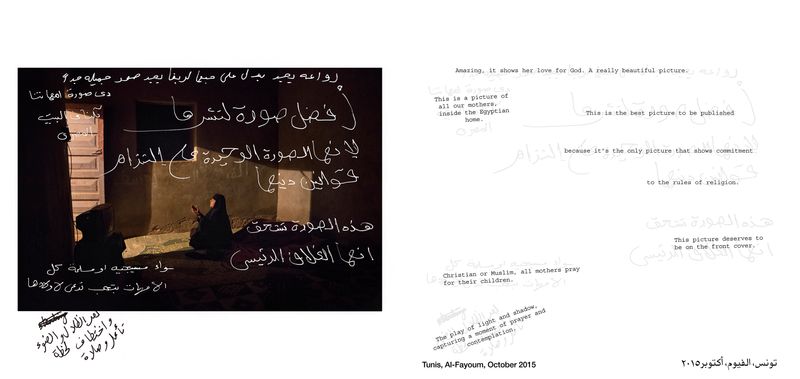 دى صورة امهاتنا
أفضل صورة لنشرها
لانها الصورة الوحيدة فى إلتزام
قوانين دينها
هذه الصورة تستحق
انها الغلاف الرئيسى
سواء مسيحيه او مسلمة كل
الأمهات
لعب الظلال و الضوء
واختطاف لحظة
تأمل وصلاة
Amazing, it shows her love for God. A really beautiful picture.
This is a picture of
all our mothers,
inside the Egyptian
home.
This is the best picture to be published
because it's the only picture that shows commitment
to the rules of religion.
This picture deserves to
be on the front cover.
Christian or Muslim, all mothers pray
for their children.
The play of light and shadow,
capturing a moment of prayer and
contemplation.
Tunis, Al-Fayoum, October 2015
تونس، الفيوم، أكتوبر ٢٠١٥